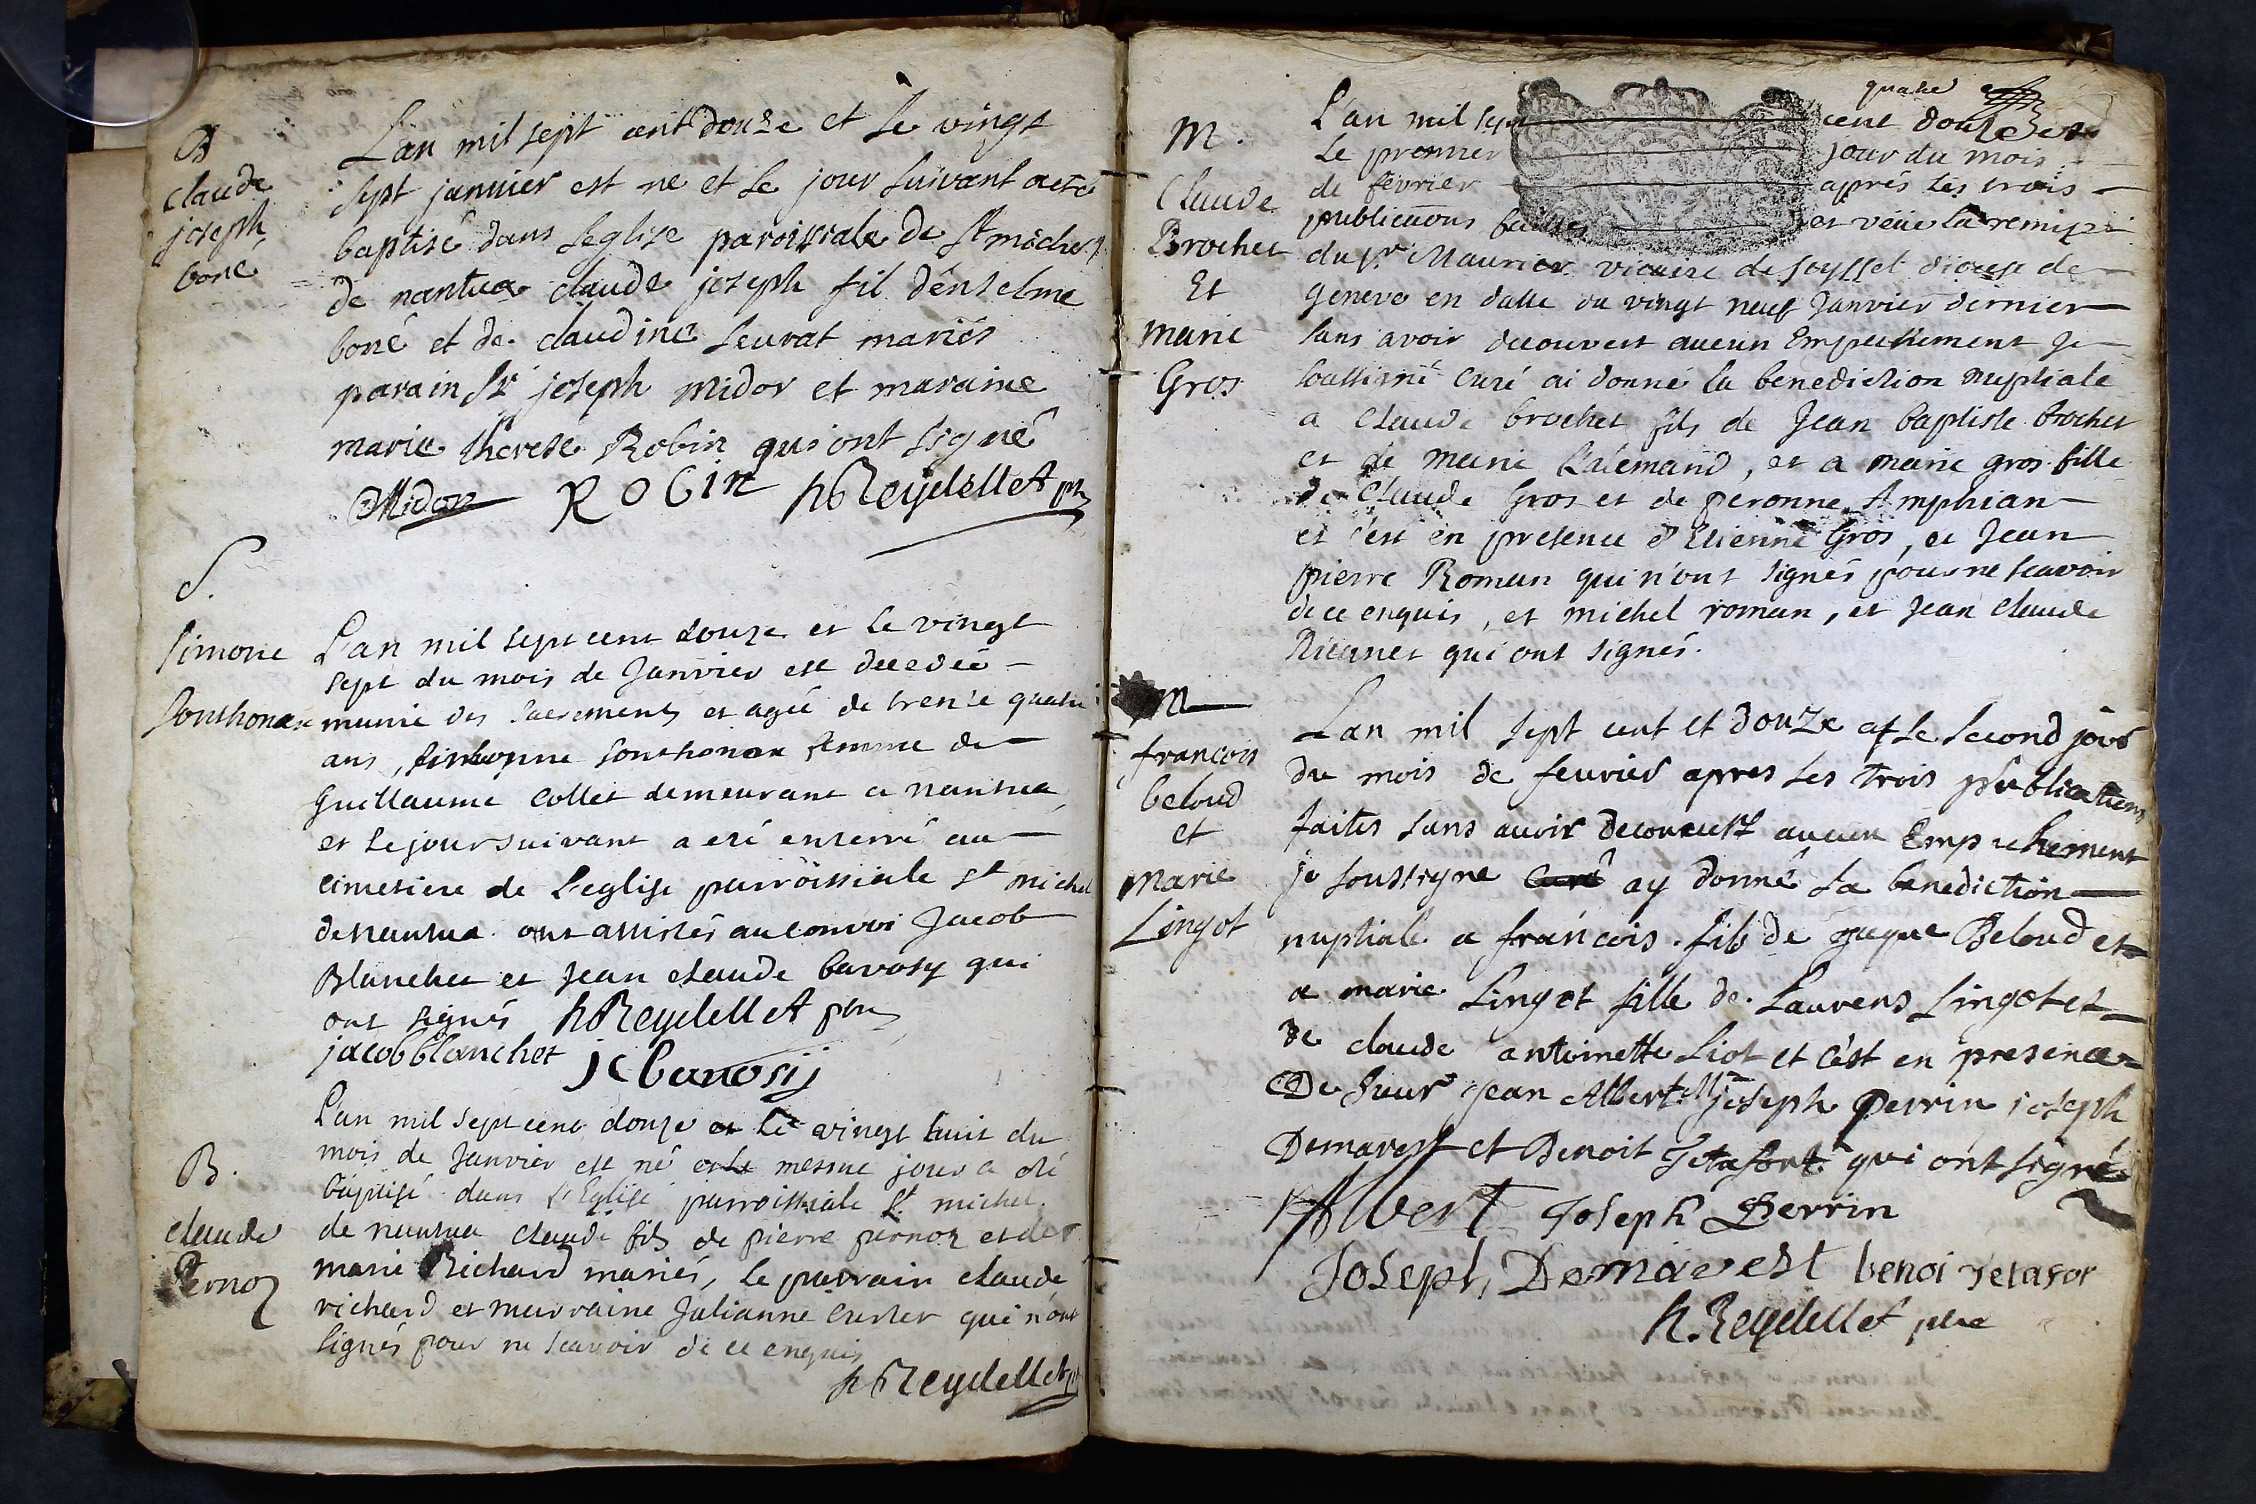 B
claude
joseph
boné
Lan mil sept cent douze et le vingt
sept januier est ne et le jour suivant a ete
baptisé dans leglise paroissiale de st michel
de nantua claude joseph fil dénselme
boné et de claudine seurat mariés
parain sr joseph midor et maraine
marie therese Robin qui ont signé
Midor ROBIN Reydellet
S.
Simone
Sonthonax
L'an mil sept cent douze et le vingt
sept du mois de Janvier est decedée
munie des sacrements et agée de trente quatre
ans, sonthonax femme de
Guillaume Collet demeurant a nantua
et le jour suivant a eté enterré au
cimetiere de L'eglise parroissiale st michel
de nantua ont assistés au convoi Jacob
Blanchet et Jean claude bavosy qui
ont signés Reydellet
jacob blanchet jc bavosij
B.
claude
Pernoz
L'an mil sept cent douze et le vingt huit du
mois de Janvier est né et le mesme jour a eté
baptisé dans l'Eglise parroissiale st. michel
de nantua claude fils de pierre pernoz et de
marie Richard mariés, le parrain claude
richard et marraine Julianne qui n'ont
signés pour ne scavoir de ce enquis
Reydellet
quatre
M.
Claude
Brochet
Et
marie
Gros
L'an mil sept cent douze et
Le premier jour du mois
de fevrier aprés les trois
publications faittes et veüe la remise
du sr. Maurier vicaire de seyssel diocese de
Geneve en datte du vingt neuf Janvier dernier
sans avoir decouvert aucun Empechement Je
soussiné curé ai donné la benediction nuptiale
a Claude brochet fils de Jean baptiste brochet
et de marie Lalemand, et a marie gros fille
de Claude Gros et de peronne Amphian
et c'est en presence d'Etienne Gros, et Jean
pierre Roman qui n'ont signés pour ne scavoir
de ce enquis, et michel roman, et Jean claude
qui ont signés.
M
francois
beloud
et
Marie
Lingot
Lan mil sept cent et douze et le second jour
du mois de feurier apres les trois publications
faites sans auoir decouuert aucun Empechement
je soussigne curé ay donné la benediction
nuptiale a francois fils de jaque Beloud et
a marie Lingot fille de Laurens Lingot et
de claude antoinette Liot et cést en presence
De sieur jean Albert Mr joseph Perrin joseph
Demavest et Benoit Jetafort qui ont signé
Albert Joseph Perrin
Joseph Demavest benoi jetafor
Reydellet